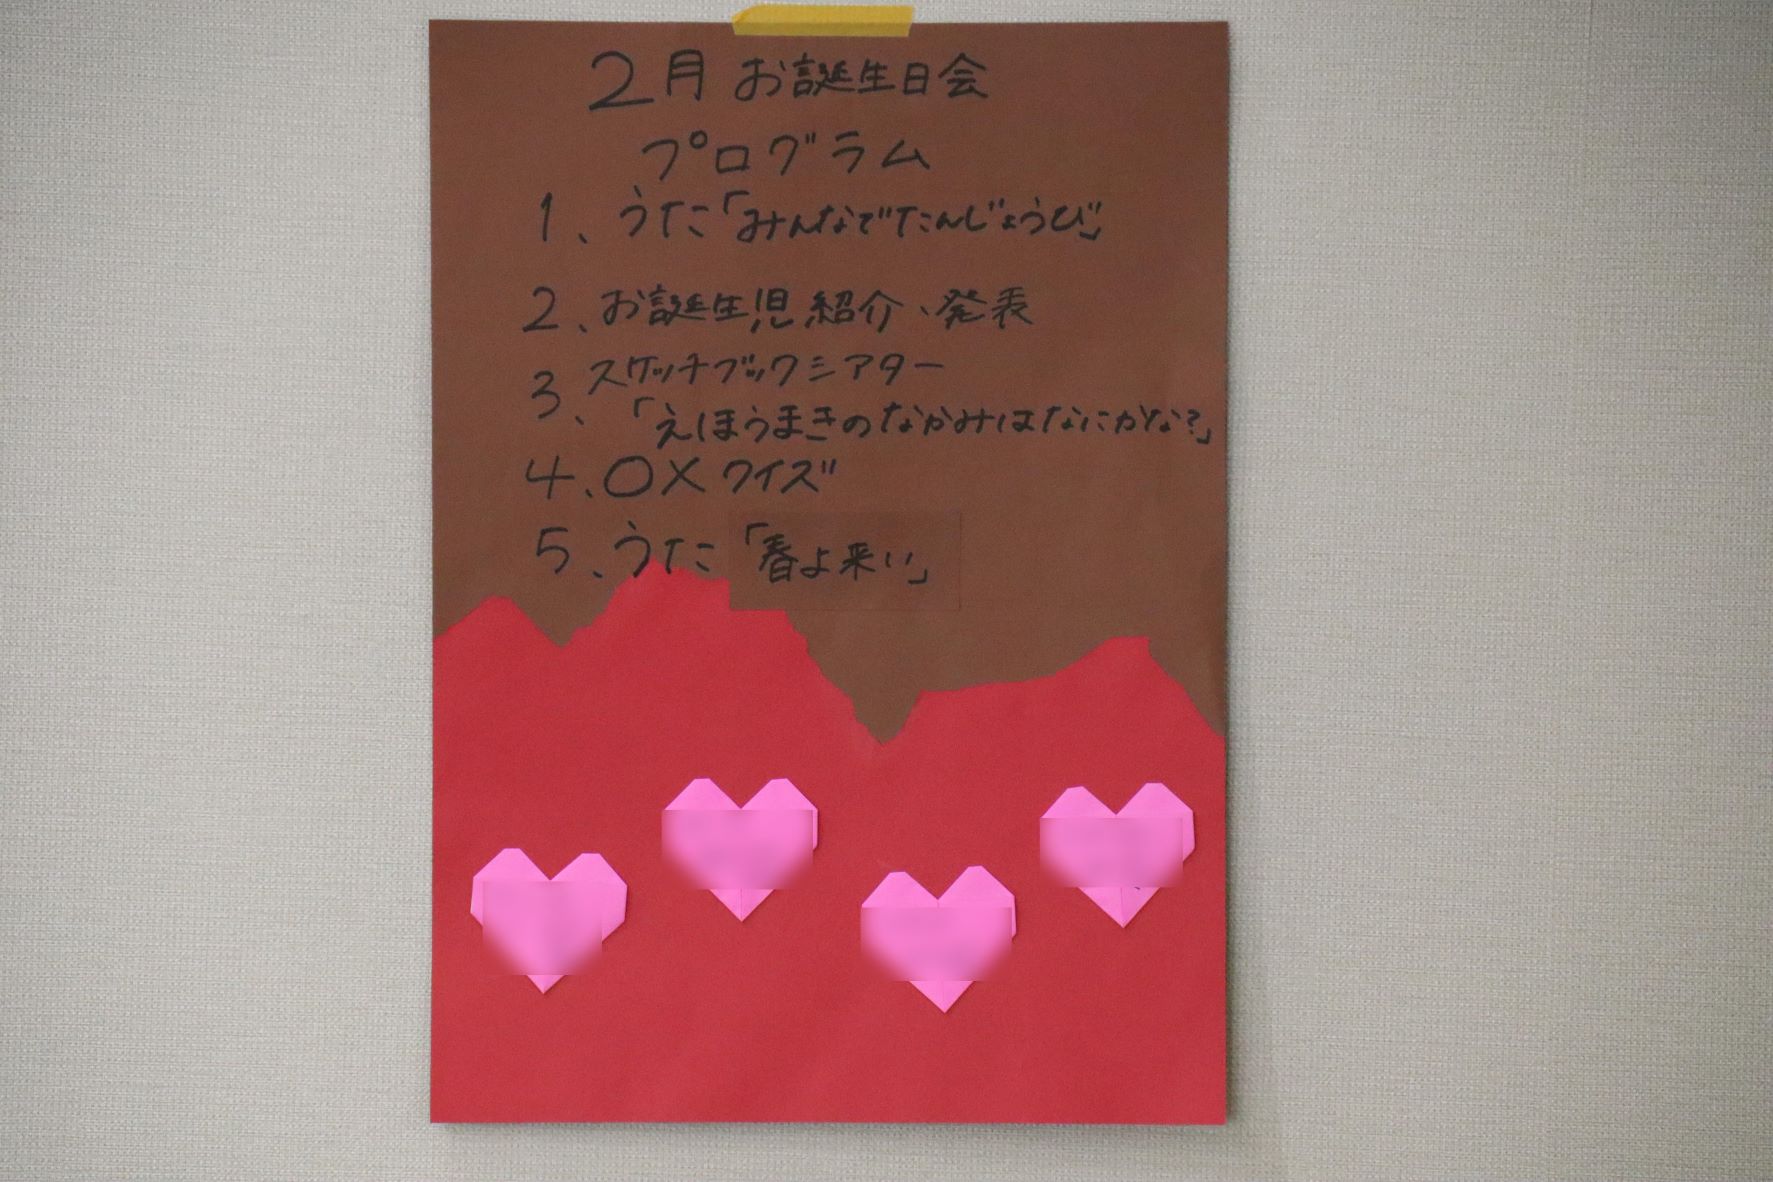 2月 お誕生日会
プログラム
1、うた「みんなでたんじょうび」
2、お誕生児紹介、発表
3、スケッチブックシアター
「えほうまきのなかみはなにかな?」
4、〇×クイズ
5、うた「春よ来い」